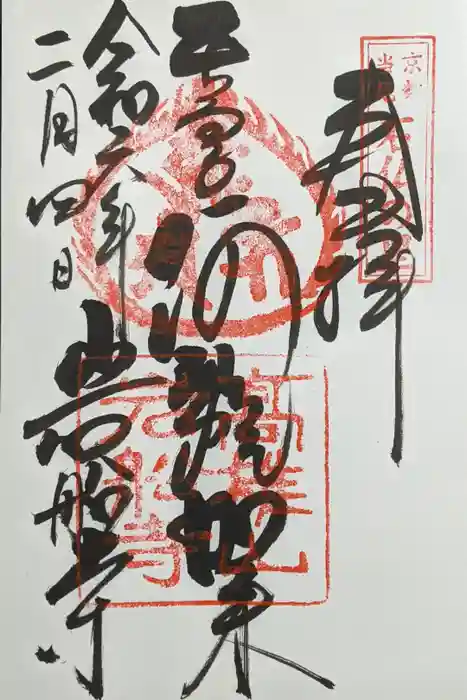 奉拝
阿弥陀如来
岩船寺
令和六年
二月四日
京都
当尾
高雄山
岩船寺